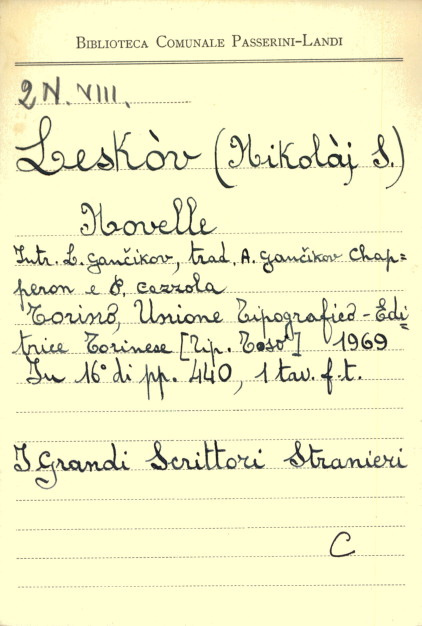 BIBLIOTECA COMUNALE PASSERINI-LANDI
2 N. VIII.
Leskòv (Nikolàj S.)
Novelle
Intr. L. Gančikov, trad. A. Gančikov Chap=
peron e P. Cazzola
Torino, Unione Tipografico-Edi=
trice Torinese [Tip. Toso] 1969
In 16° di pp. 440, 1 tav. f.t.
I Grandi Scrittori Stranieri
C